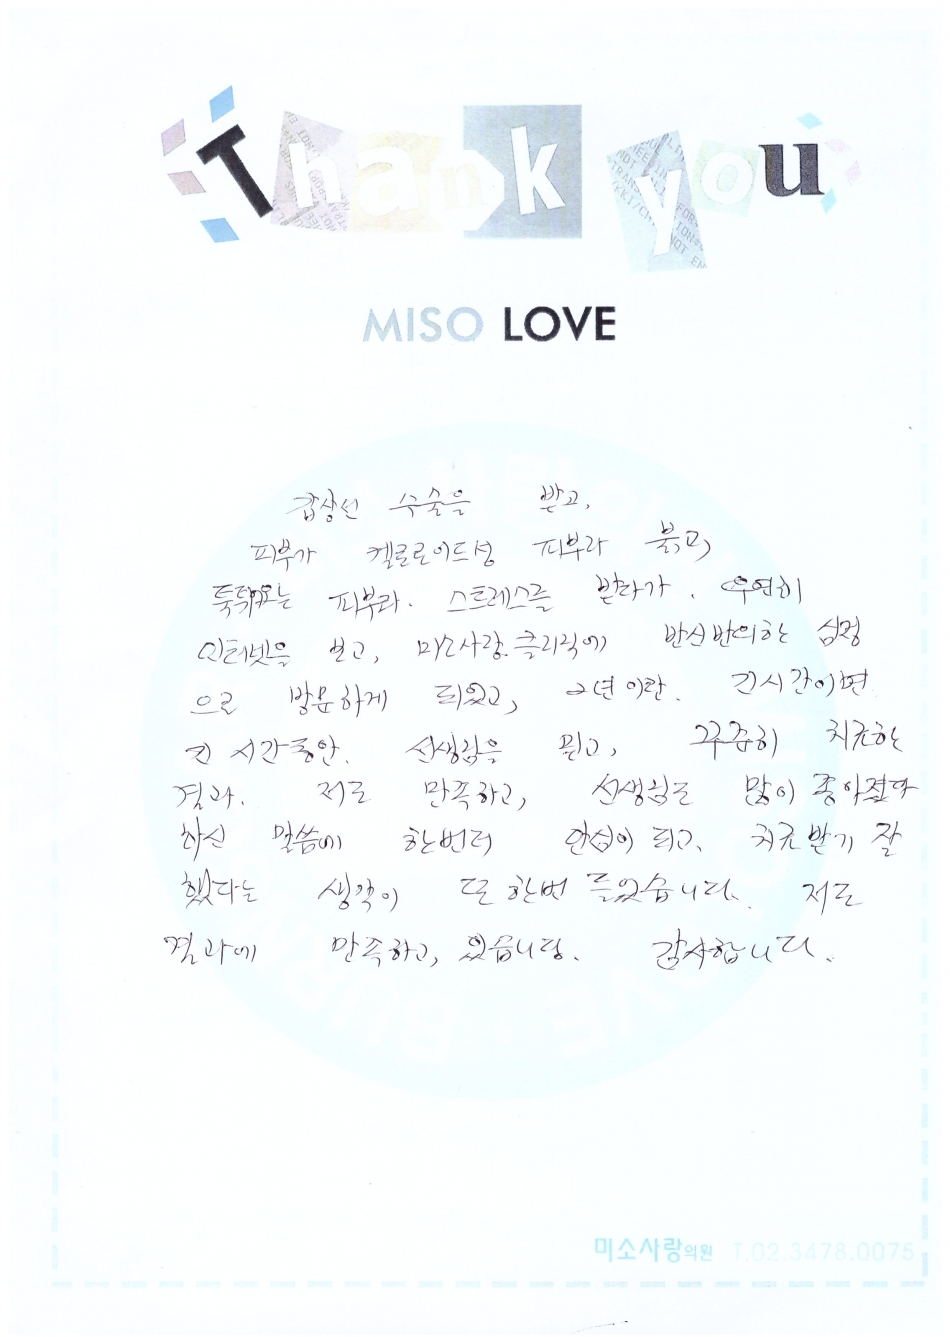 Thank you
MISO LOVE
갑상선 수술을 받고,
피부가 켈로로이드성 피부라 붉고,
피부라. 스트레스를 받다가. 우연히
인터넷을 보고, 미소사랑.클리닉에 반신반의하는 심정
으로 방문하게 되었고, 2년이란. 긴시간이면
긴 시간동안. 선생님을 믿고, 꾸준히 치료한
결과. 저도 만족하고, 선생님도 많이 좋아졌다
하신 말씀에 한번더 안심이 되고, 치료받기 잘
했다는 생각이 또 한번 들었습니다. 저도
결과에 만족하고, 있습니다. 감사합니다.
미소사랑의원 T.02.3478.0075